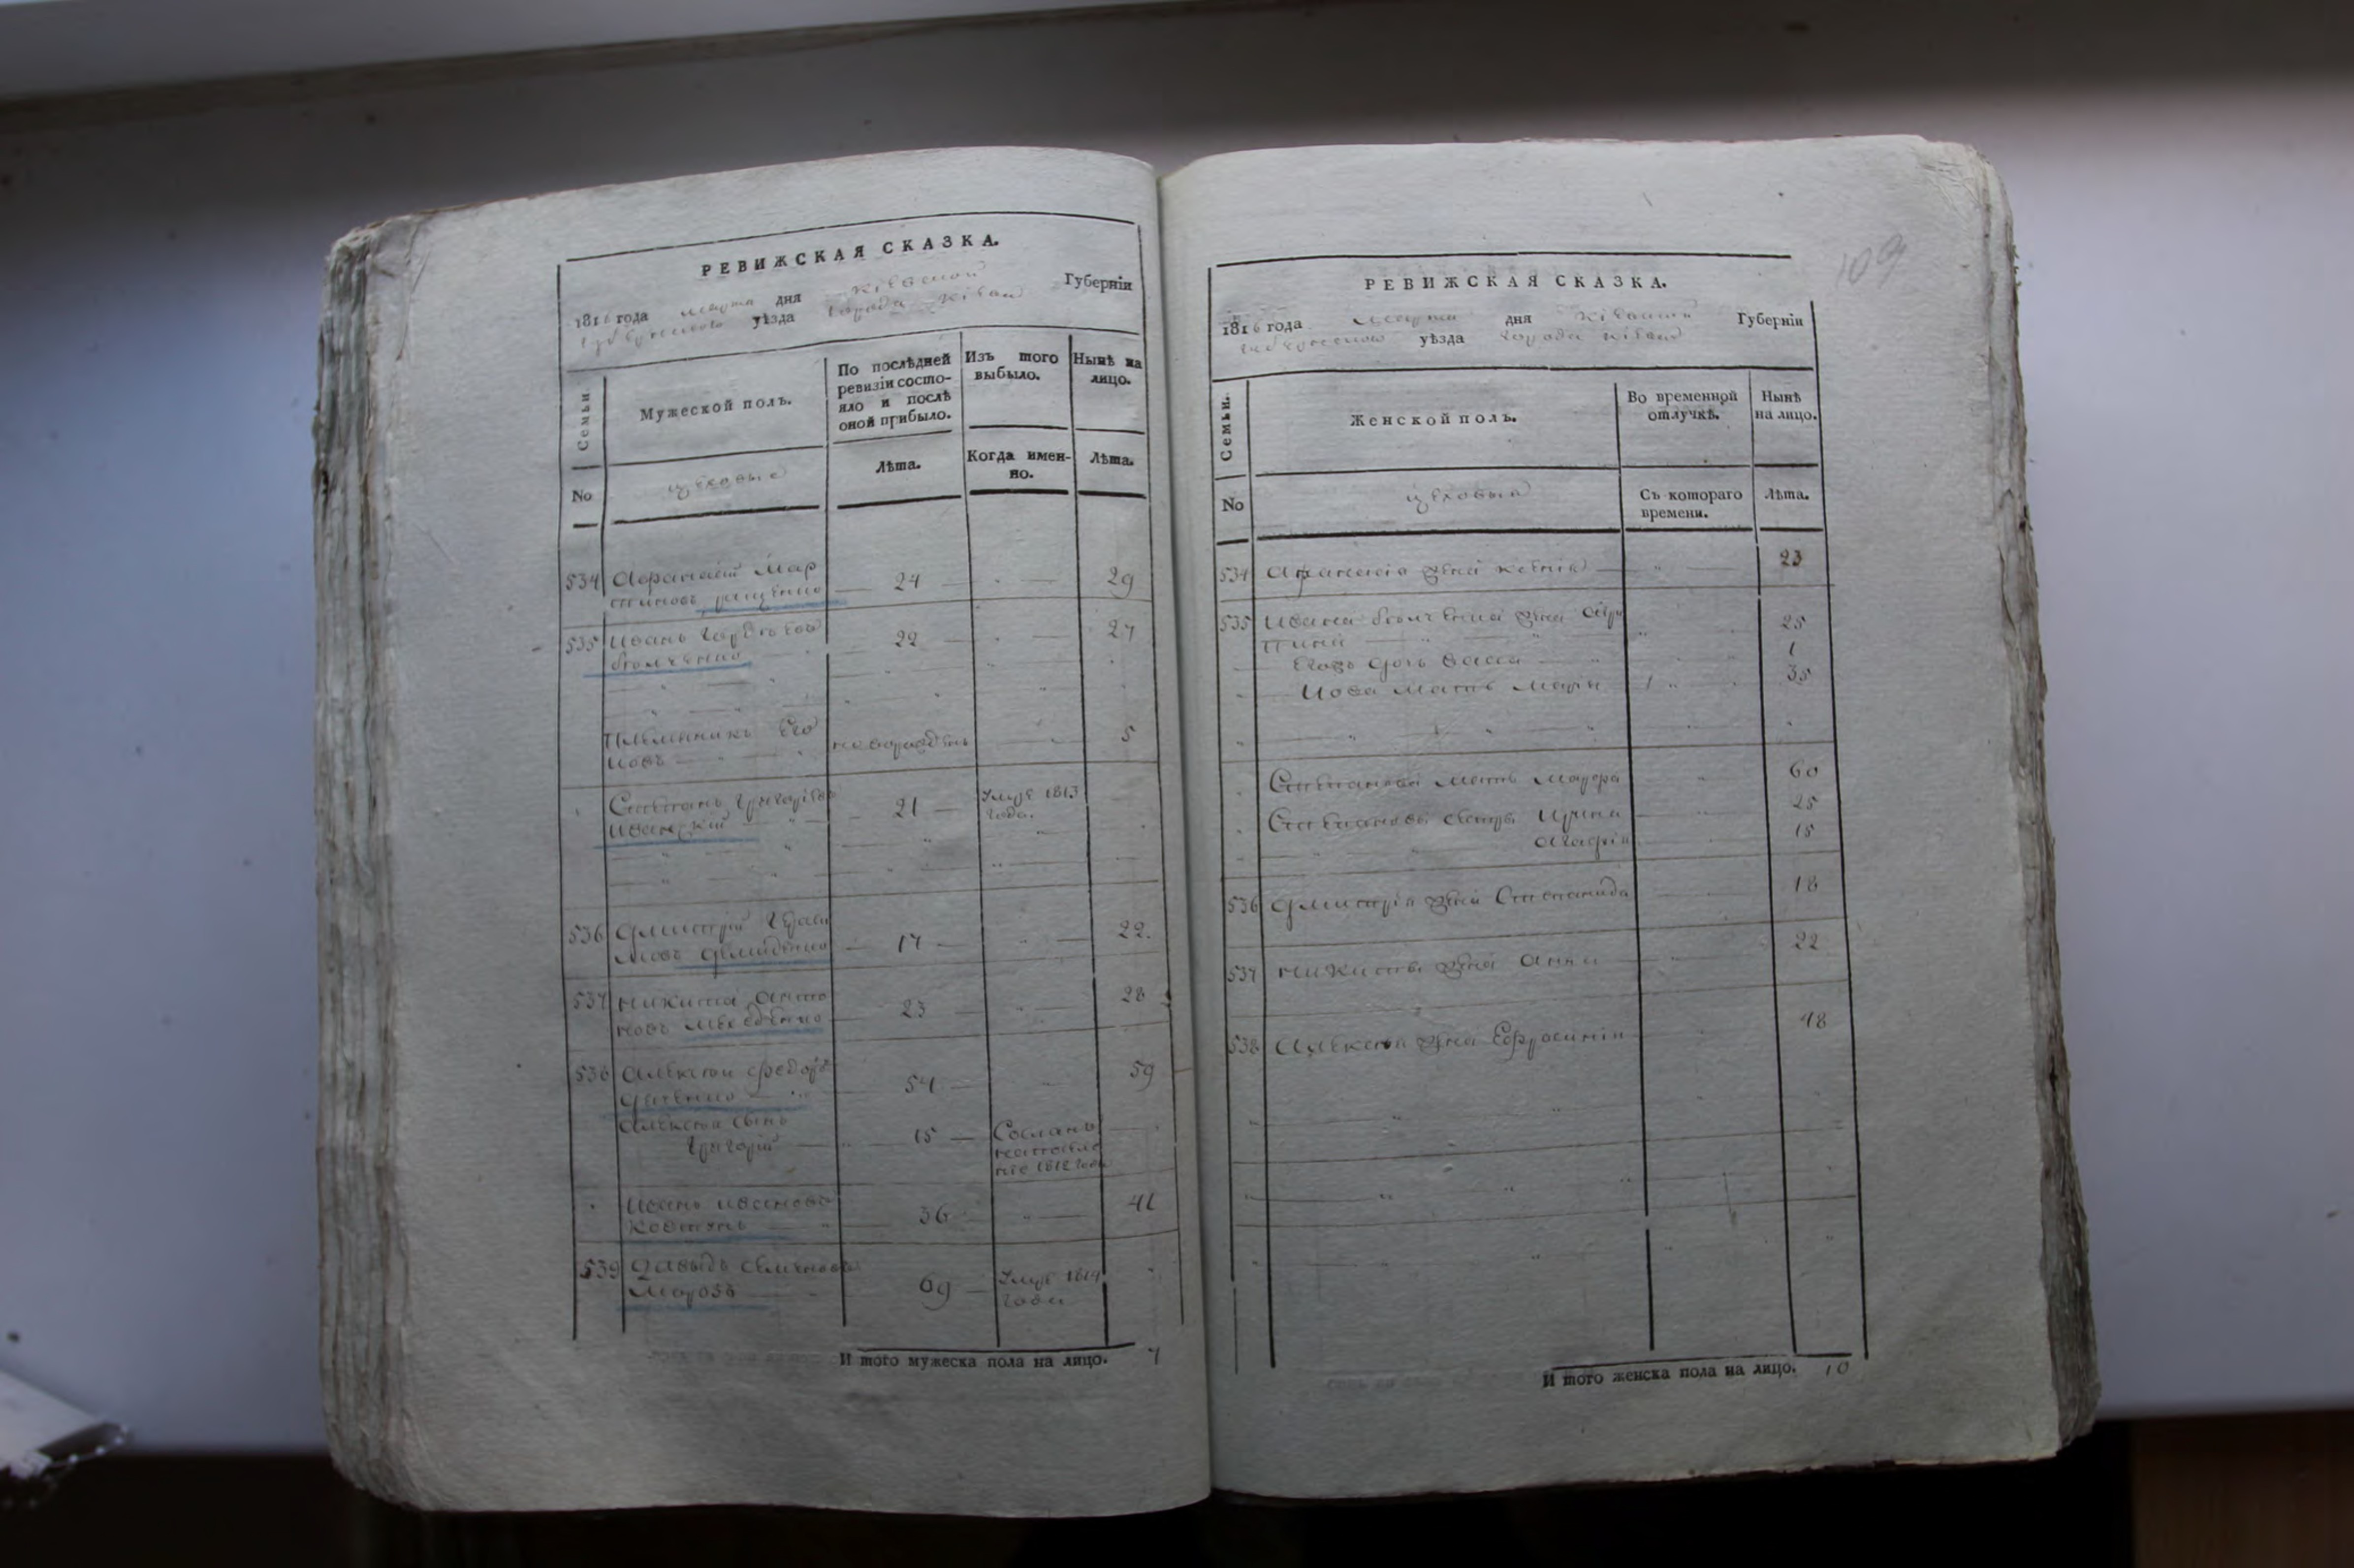 РЕВИЖСКАЯ СКАЗКА.
1816 года марта дня Кіевской Губерніи
губернского уѣзда города Кіева
Семьи.
Мужеской полъ.
По послѣдней ревизіи состо-
яло и послѣ
оной прибыло.
Изъ того
выбыло.
Нынѣ на
лицо.
No
цеховые
Лѣта.
Когда имен-
но.
Лѣта.
534 Афанасій Мар
тиновъ 24 29
535 Иванъ 22 27
Племянникъ Его
Іовъ неворожденъ 5
Степанъ Григорьевъ 21 Умре 1813
года.
536 Дмитрій Гераси
мовъ Демиденко 17 22.
537 Никита Анто
новъ Меведенко 23 28
538 Алексей Федоръ 54 59
Алексея сынъ
Григорій 15 Сосланъ
на поселе
ніе 1812 года
Иванъ Ивановъ
Ковтунъ 36 41
539 Давыдъ Семеновъ
Морозъ 69 Умре 1814
года
И того мужеска пола на лицо. 7
109
РЕВИЖСКАЯ СКАЗКА.
1816 года марта дня Кіевской Губерніи
губернского уѣзда города Кіева
Семьи.
Женской полъ.
Во временной
отлучкѣ.
Нынѣ
на лицо.
No
цеховыя
Съ котораго
времени.
Лѣта.
534 Афанасія жена Ксенія 23
535 Ивана жена Агри
пина 25
Еговъ дочь Васса 1
Іова мать Марія 35
Степанова мать Мавра 60
Степановы сестры Ирина 25
Агафія 15
536 Дмитрія жена Степанида 18
537 Никиты жена Анна 22
538 Алексея жена Ефросинія 48
И того женска пола на лицо. 10